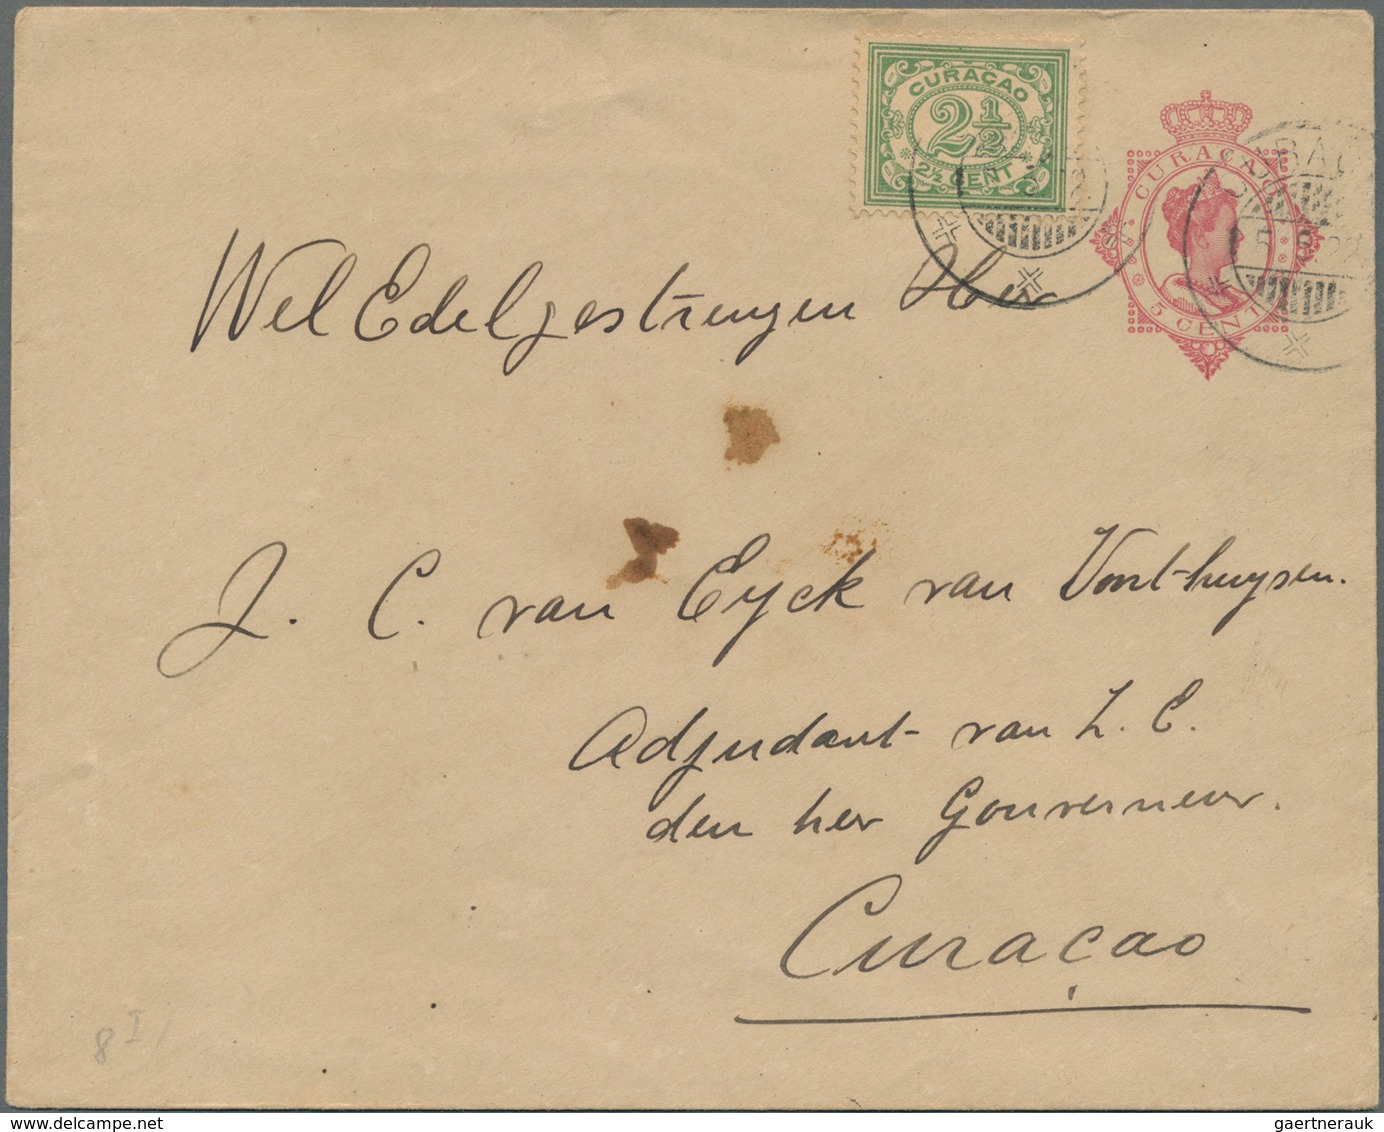 CURAÇAO
2½
2½ CENT
CURAÇAO
5 CENT
Wel Edelgestrengen Heer
J. C. van Eyck van Voorthuysen.
Adjudant van Z. E.
den heer Gouverneur.
Curacao
8 I /
www.delcampe.net
gaertnerauk